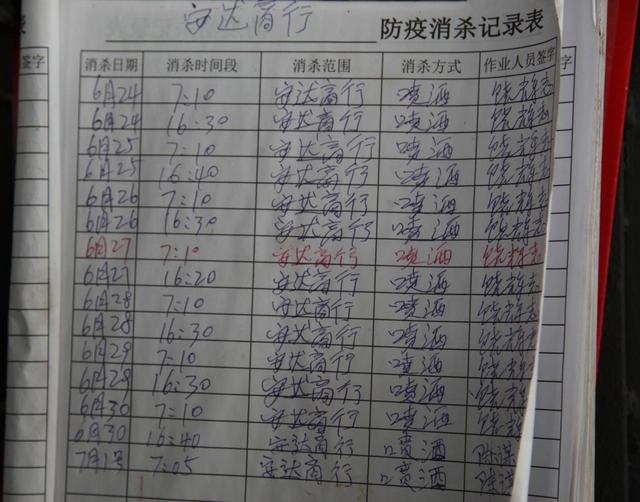 安达商行
防疫消杀记录表
签字 消杀日期 消杀时间段 消杀范围 消杀方式 作业人员签字
6月24 7:10 安达商行 喷洒
6月24 16:30 安达商行 喷洒
6月25 7:10 安达商行 喷洒
6月25 16:40 安达商行 喷洒
6月26 7:10 安达商行 喷洒
6月26 16:30 安达商行 喷洒
6月27 7:10 安达商行 喷洒
6月27 16:20 安达商行 喷洒
6月28 7:10 安达商行 喷洒
6月28 16:30 安达商行 喷洒
6月29 7:10 安达商行 喷洒
6月29 16:30 安达商行 喷洒
6月30 7:10 安达商行 喷洒
6月30 16:40 安达商行 喷洒
7月1号 7:05 安达商行 喷洒